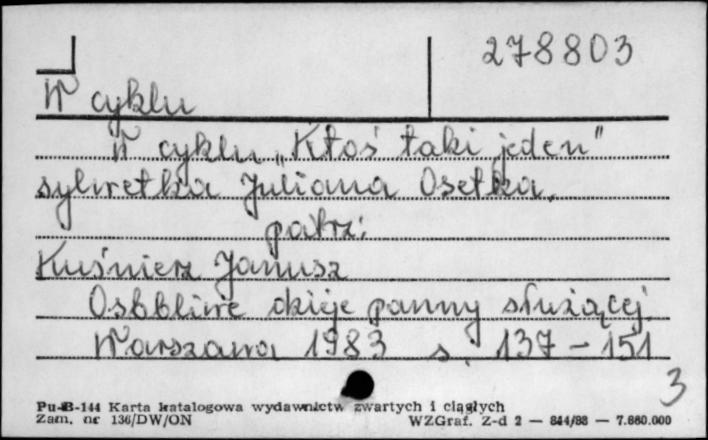 278803
W cyklu
W cyklu „Ktoś taki jeden"
sylwetka Juliana Osetka.
patrz:
Kuśnierz Janusz
Osobliwe dzieje panny służącej.
Warszawa 1983 s. 137-151
3
Pu-B-144 Karta katalogowa wydawnictw zwartych i ciągłych
Zam. nr 136/DW/ON WZGraf. Z-d 2 — 844/83 — 7.660.000